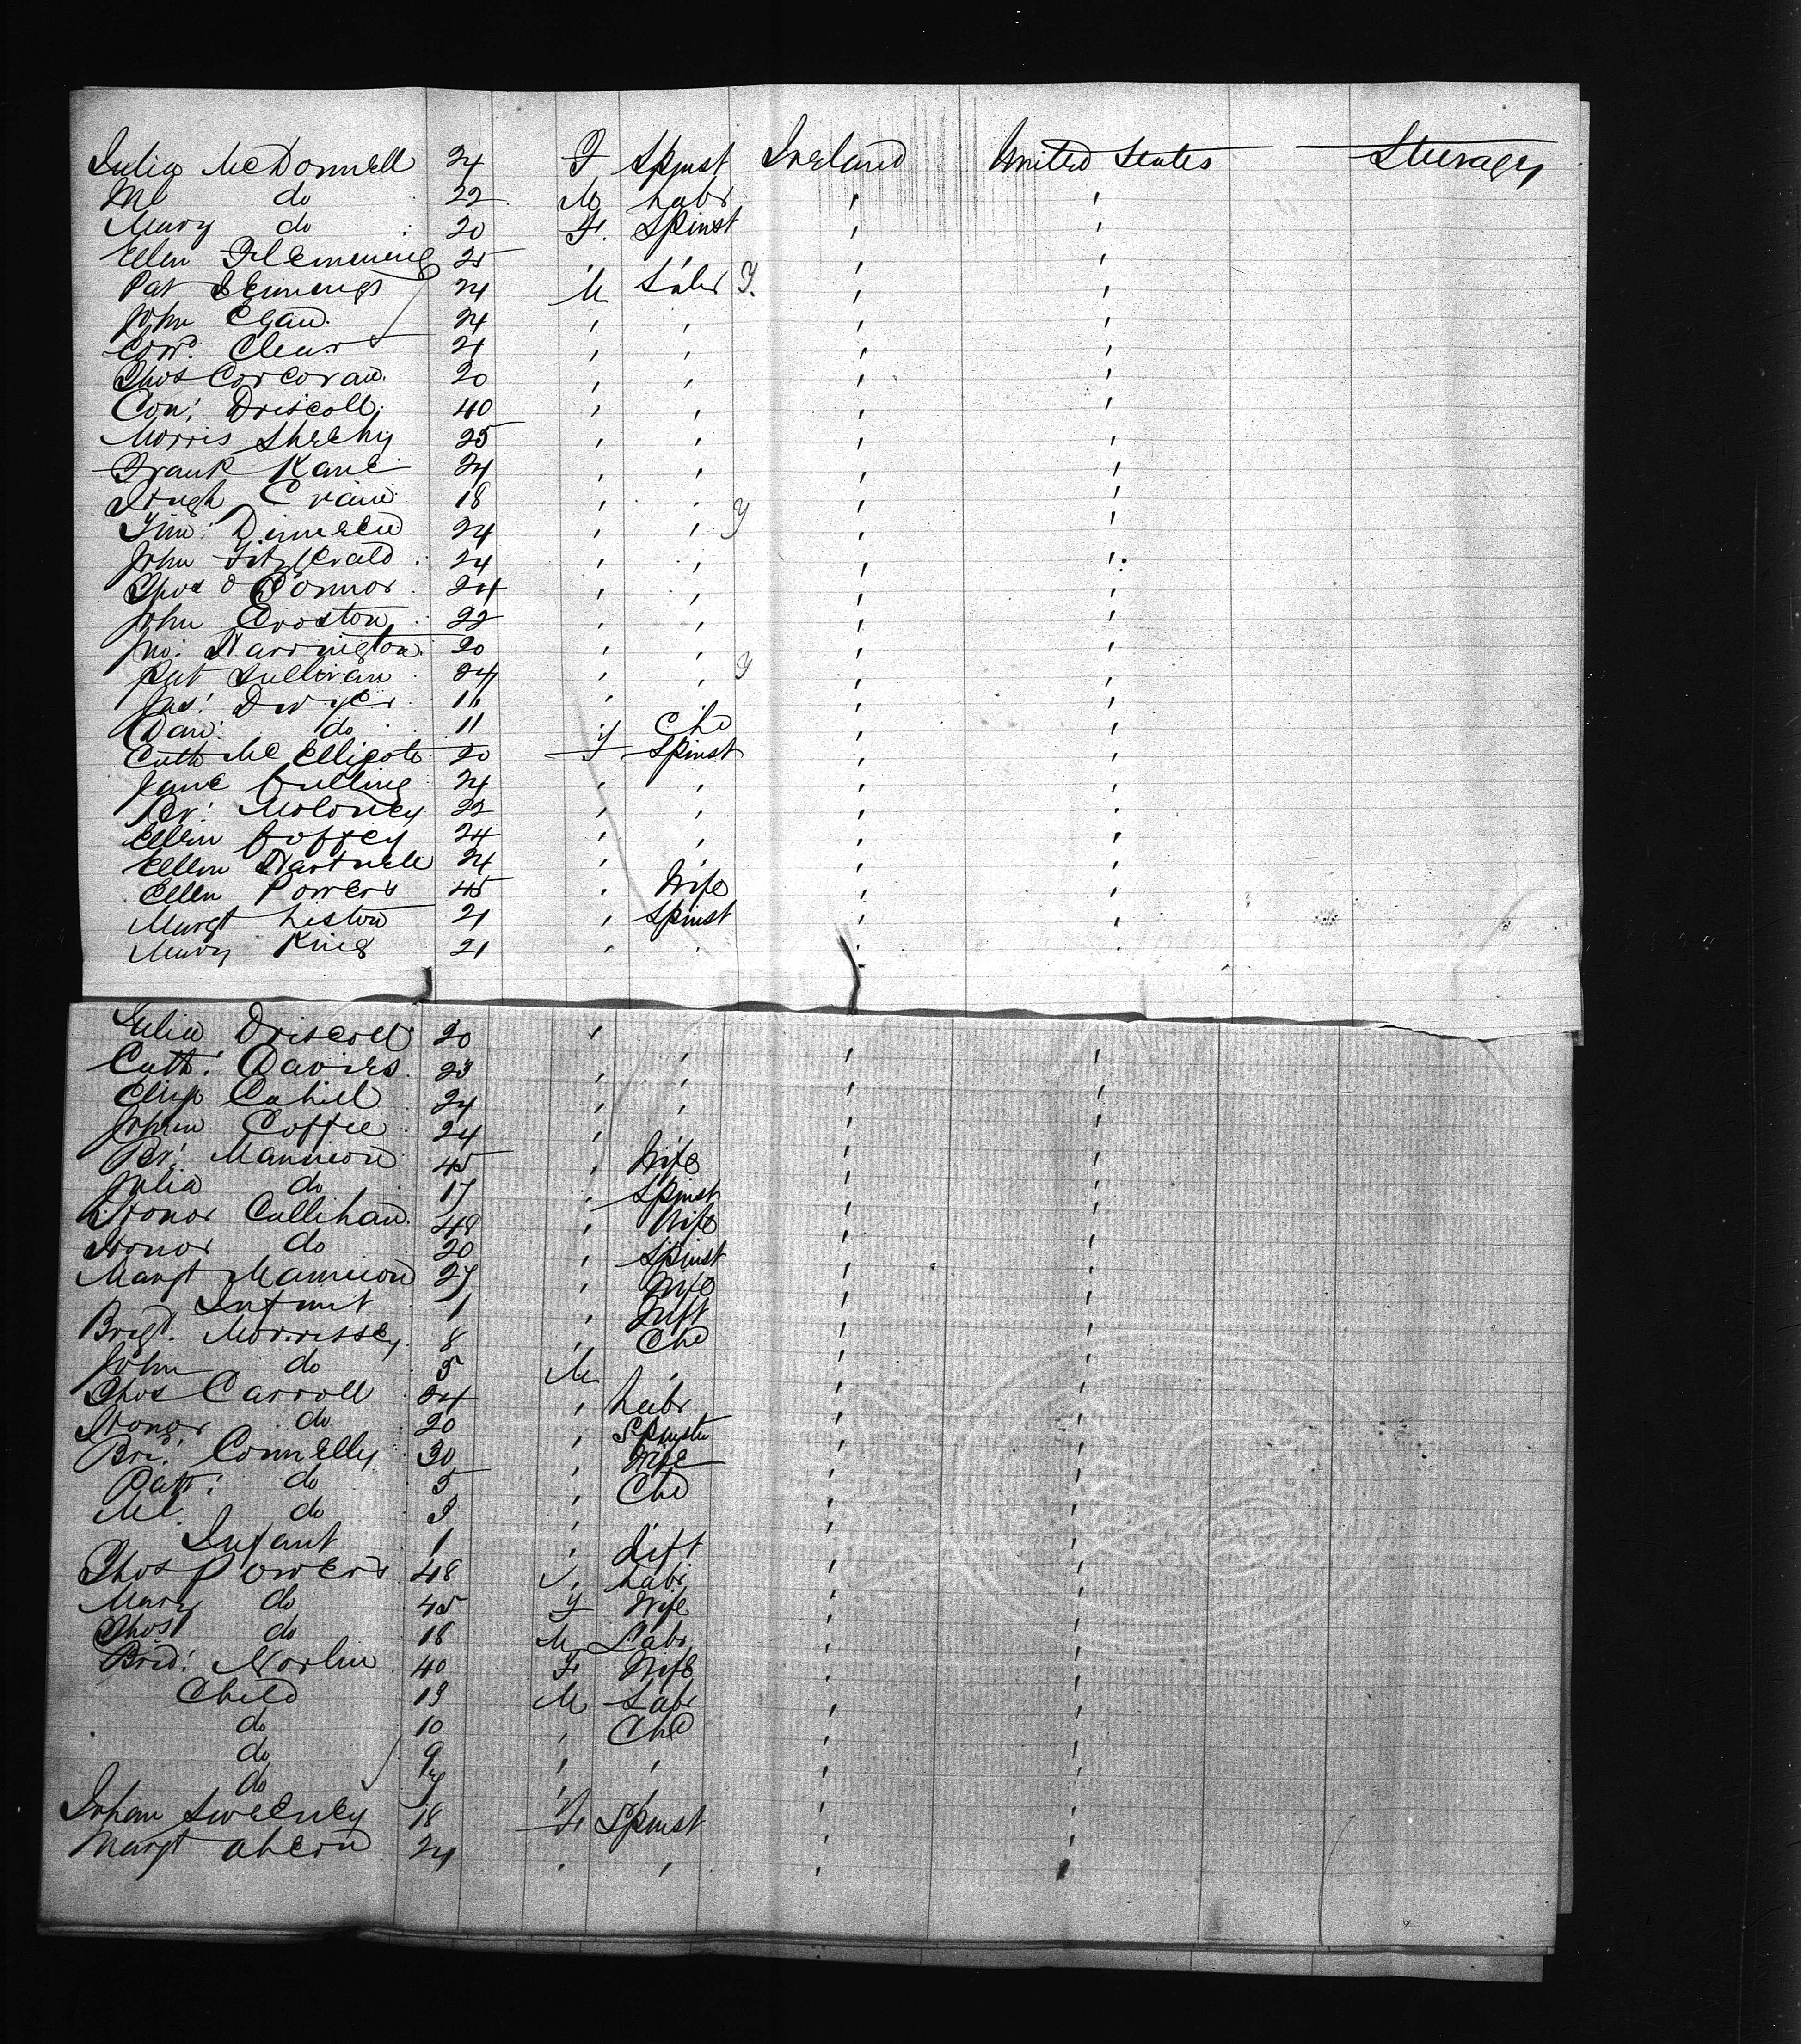 Julia McDonnell 24 F Spinst Ireland United States Steerage
Ml do 22 M Labr " "
Mary do 20 F. Spinst " "
Ellen Flemming 25 " " " "
Pat Jennings 24 M Labr " "
John Egan 24 " " " "
Corn. Cleary 21 " " " "
Thos Corcoran 20 " " " "
Con: Driscoll 40 " " " "
Morris Sheehy 25 " " " "
Frank Kane 24 " " " "
Hugh Crain 18 " " " "
Tim: Dinneen 24 " " " "
John Fitzgerald 24 " " " "
Thos O Connor 24 " " " "
John Croston 22 " " " "
Jno: Harrington 20 " " " "
Pat Sullivan 24 " " " "
Jas: Dwyer 16 " " " "
Dan: do 11 " Chd " "
Cath McElligott 20 F Spinst " "
Jane Culling 24 " " " "
Br: Moloney 22 " " " "
Ellen Coffey 24 " " " "
Ellen Hartnell 24 " " " "
Ellen Powers 45 " Wife " "
Margt Liston 21 " Spinst " "
Mary King 21 " " " "
Julia Driscoll 20 " " " "
Cath: Davies 23 " " " "
Eliza Cahill 24 " " " "
Johan Coffee 24 " " " "
Br: Mannion 45 " Wife " "
Julia do 17 " Spinst " "
Honor Callihan 48 " Wife " "
Honor do 20 " Spinst " "
Margt Mannion 27 " Wife " "
Infant 1 " Inft " "
Brigt. Morrissey 8 " Chd " "
John do 5 M " " "
Thos Carroll 24 " Labr " "
Honor do 20 " Spinster " "
Bri: Connelly 30 " Wife " "
Patt: do 5 " Chd " "
Ml do 3 " " " "
Infant 1 " Inft " "
Thos Powers 48 " Labr " "
Mary do 45 F Wife " "
Thos do 18 M Labr " "
Brid: Norlin 40 F Wife " "
Child 13 M Labr " "
do 10 " Chd " "
do 9 " " " "
do 7 " " " "
Johan Sweeney 18 F Spinst " "
Margt Ahern 24 " " " "